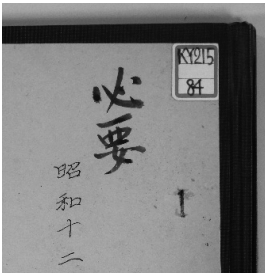 KY215
84
必要
昭和十二
I